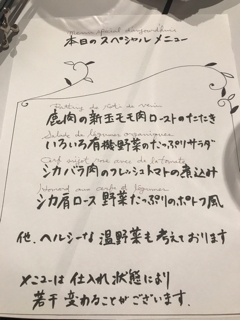 本日のスペシャルメニュー
鹿肉の新玉モモ肉ローストのたたき
Salade de légumes organiques
いろいろ有機野菜のたっぷりサラダ
シカバラ肉のフレッシュトマトの煮込み
シカ肩ロース 野菜たっぷりのポトフ風
他、ヘルシーな温野菜も考えております
メニューは仕入れ状態により
若干変わることがございます。